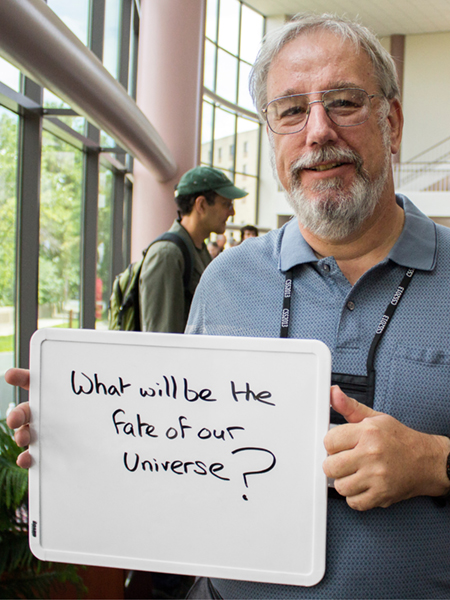 What will be the
fate of our
Universe?